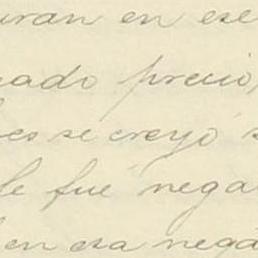 uran en ese
ado precio,
es se creyó s
le fué nega
en esa nega